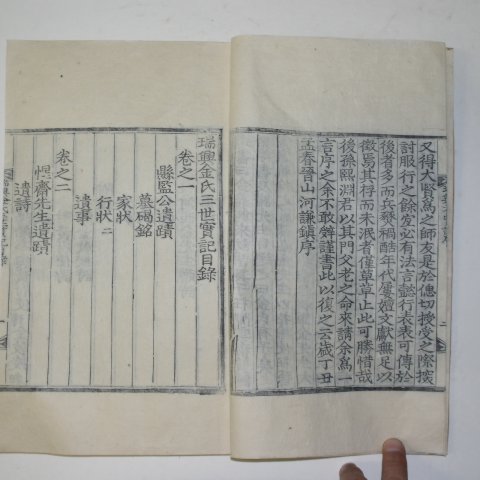 又得大賢爲之師友是於偲切授受之際撰
討服行之餘宜必有法言懿行表表可傳於
後者多而兵燹稠酷年代屢嬗文獻無足以
徵焉其存而未泯者僅草草止此可勝惜哉
後孫熙淵君以其門父老之命來請余爲一
言序之余不敢辭謹書此以復之云歲丁丑
孟春晉山河謙鎭序
瑞興金氏三世實記目錄
卷之一
縣監公遺蹟
墓碣銘
家狀
行狀二
遺事
卷之二
惺齋先生遺蹟
遺詩